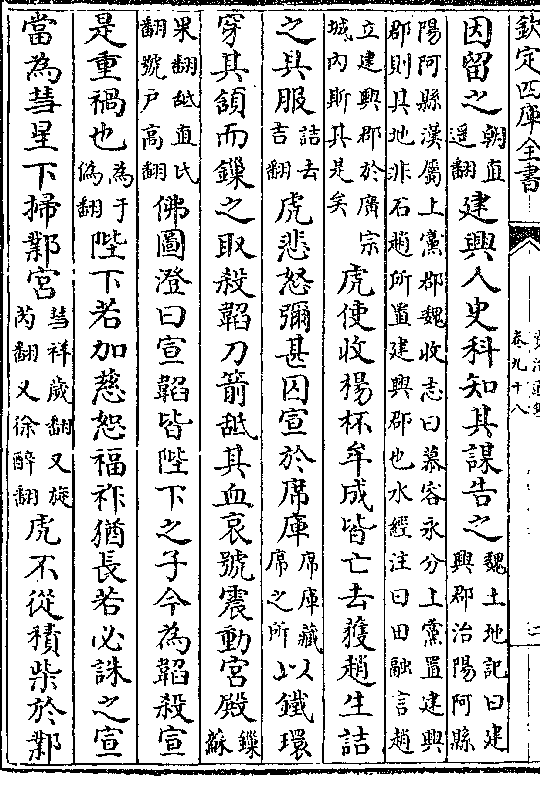 欽定四庫全書
卷九十八
因留之朝直遥翻建興人史科知其謀告之魏土地記曰建興郡治陽阿縣
陽阿縣漢屬上黨郡魏收志曰慕容永分上黨置建興
郡則其地非石趙所置建興郡也水經注曰田融言趙
立建興郡於廣宗城内斯其是矣虎使收楊杯牟成皆亡去獲趙生詰
之具服詰去吉翻虎悲怒彌甚囚宣於席庫席庫藏席之所以鐵環
穿其頷而鏁之取殺韜刀箭舐其血哀號震動宮殿鏁蘇
果翻舐直氏翻號户高翻佛圖澄曰宣韜皆陛下之子今為韜殺宣
是重禍也為于偽翻陛下若加慈恕福祚猶長若必誅之宣
當為彗星下掃鄴宮彗祥歲翻又旋芮翻又徐醉翻虎不從積柴於鄴